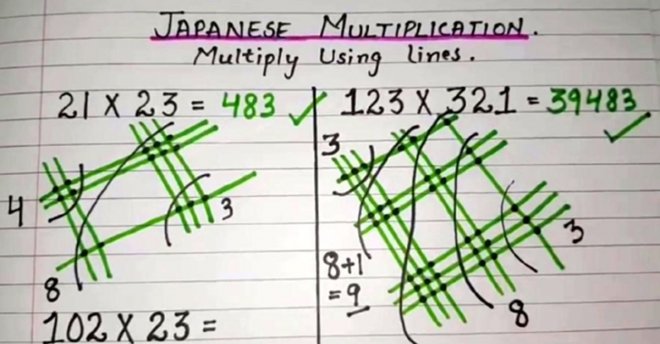 JAPANESE MULTIPLICATION.
Multiply Using lines.
21 X 23 = 483 ✓
4
3
8
102 X 23 =
123 X 321 = 39483 ✓
3
8+1
= 9
3
8